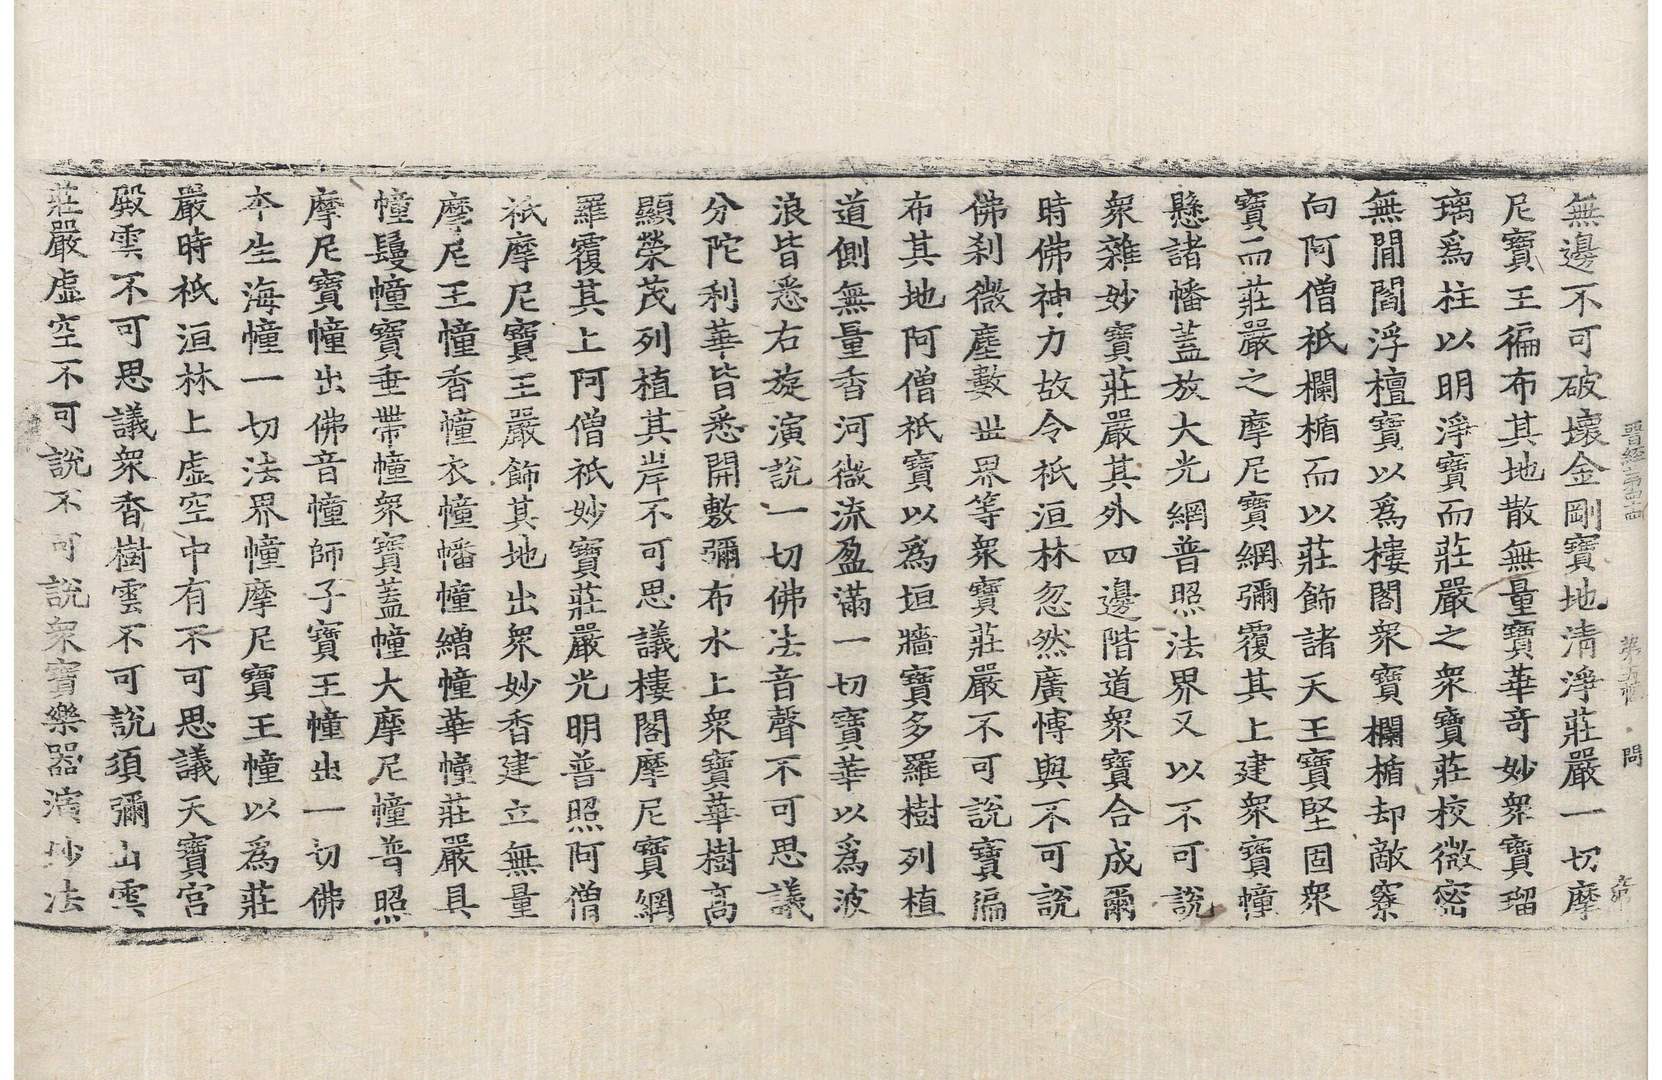 晋經 第四十四 第五張 問
無邊不可破壞金剛寶地清淨莊嚴一切摩
尼寶王徧布其地散無量寶華奇妙衆寶瑠
璃爲柱以明淨寶而莊嚴之衆寶莊校微密
無間閻浮檀寶以爲樓閣衆寶欄楯却敵寮
向阿僧祇欄楯而以莊飾諸天王寶堅固衆
寶而莊嚴之摩尼寶網彌覆其上建衆寶幢
懸諸幡蓋放大光網普照法界又以不可說
衆雜妙寶莊嚴其外四邊階道衆寶合成爾
時佛神力故令祇洹林忽然廣愽與不可說
佛刹微塵數世界等衆寶莊嚴不可說寶徧
布其地阿僧祇寶以爲垣牆寶多羅樹列植
道側無量香河微流盈滿一切寶華以爲波
浪皆悉右旋演說一切佛法音聲不可思議
分陀利華皆悉開敷彌布水上衆寶華樹高
顯榮茂列植其岸不可思議樓閣摩尼寶網
羅覆其上阿僧祇妙寶莊嚴光明普照阿僧
祇摩尼寶王嚴飾其地出衆妙香建立無量
摩尼王幢香幢衣幢幡幢繒幢華幢莊嚴具
幢鬘幢寶垂帶幢衆寶蓋幢大摩尼幢普照
摩尼寶幢出佛音幢師子寶王幢出一切佛
本生海幢一切法界幢摩尼寶王幢以爲莊
嚴時祇洹林上虛空中有不可思議天寶宮
殿雲不可思議衆香樹雲不可說須彌山雲
莊嚴虛空不可說不可說衆寶樂器演妙法